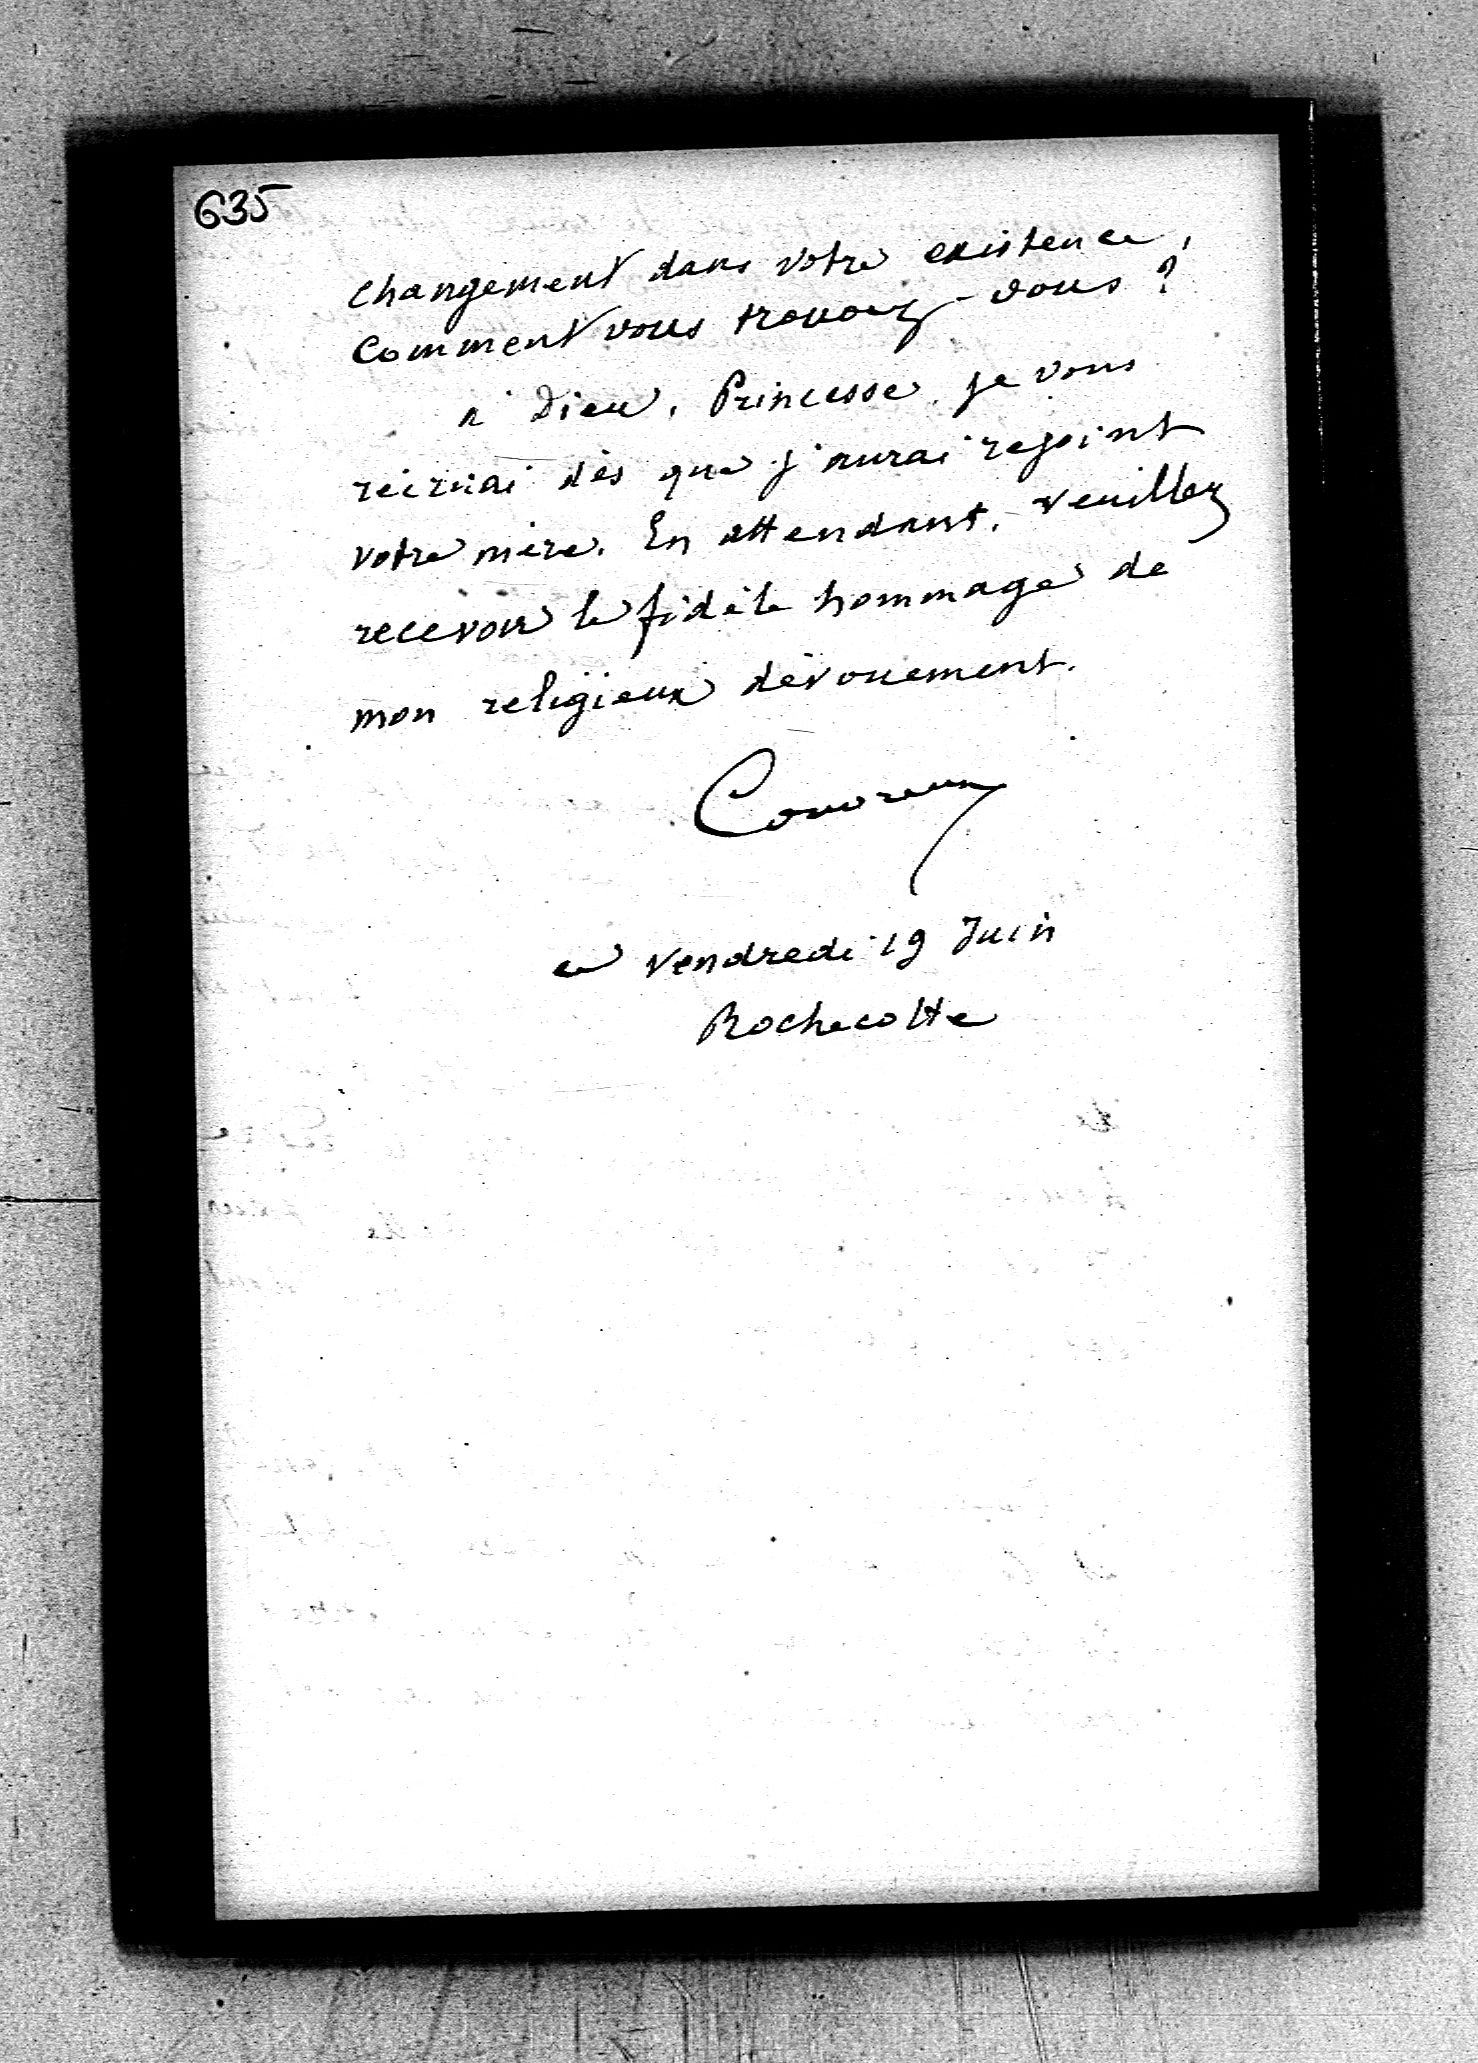 635
changement dans votre existence,
comment vous trouvez-vous ?
à Dieu, Princesse, je vous
récrirai dès que j'aurai rejoint
votre mère. En attendant, veuillez
recevoir le fidèle hommage de
mon religieux dévouement.
Couvreux
ce vendredi 19 Juin
Rochecotte